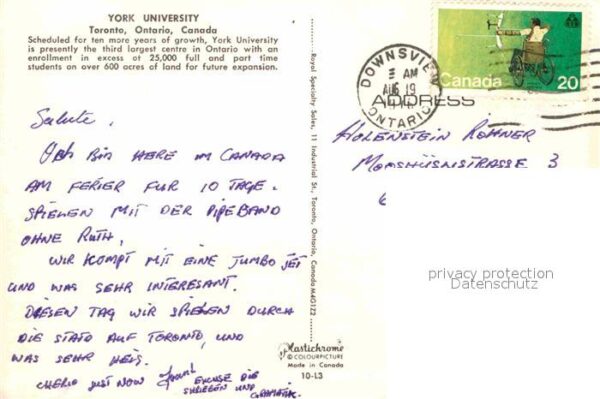 YORK UNIVERSITY
Toronto, Ontario, Canada
Scheduled for ten more years of growth, York University
is presently the third largest centre in Ontario with an
enrollment in excess at 25,000 full and part time
students an over 600 acres of land for future expansion.
Salute,
Ich BIN HERE IM CANADA
AM FERIER FUR 10 TAGE.
SPIELEN MIT DER PIPEBAND
OHNE RUTH,
WIR KOMPT MIT EINE JUMBO JET
UND WAS SEHR INTERESANT.
DIESEN TAG WIR SPIELEN DURCH
DIE STATD AUF TORONTO, UND
WAS SEHR HEIS.
CHERIO JUST NOW
EXCUSE DIE
SHRIEBEN UND GRAMATIK.
Royal Specialty Sales, 11 Industrial St., Toronto, Ontario, Canada M4G1Z2
Plastichrome
© COLOURPICTURE
Made in Canada
10-L3
DOWNSVIEW
AM
AUG 19
ONTARIO
Canada
20
ADDRESS
HOLENSTEIN ROHNER
MOOSHÜSNISTRASSE 3
6
privacy protection
Datenschutz